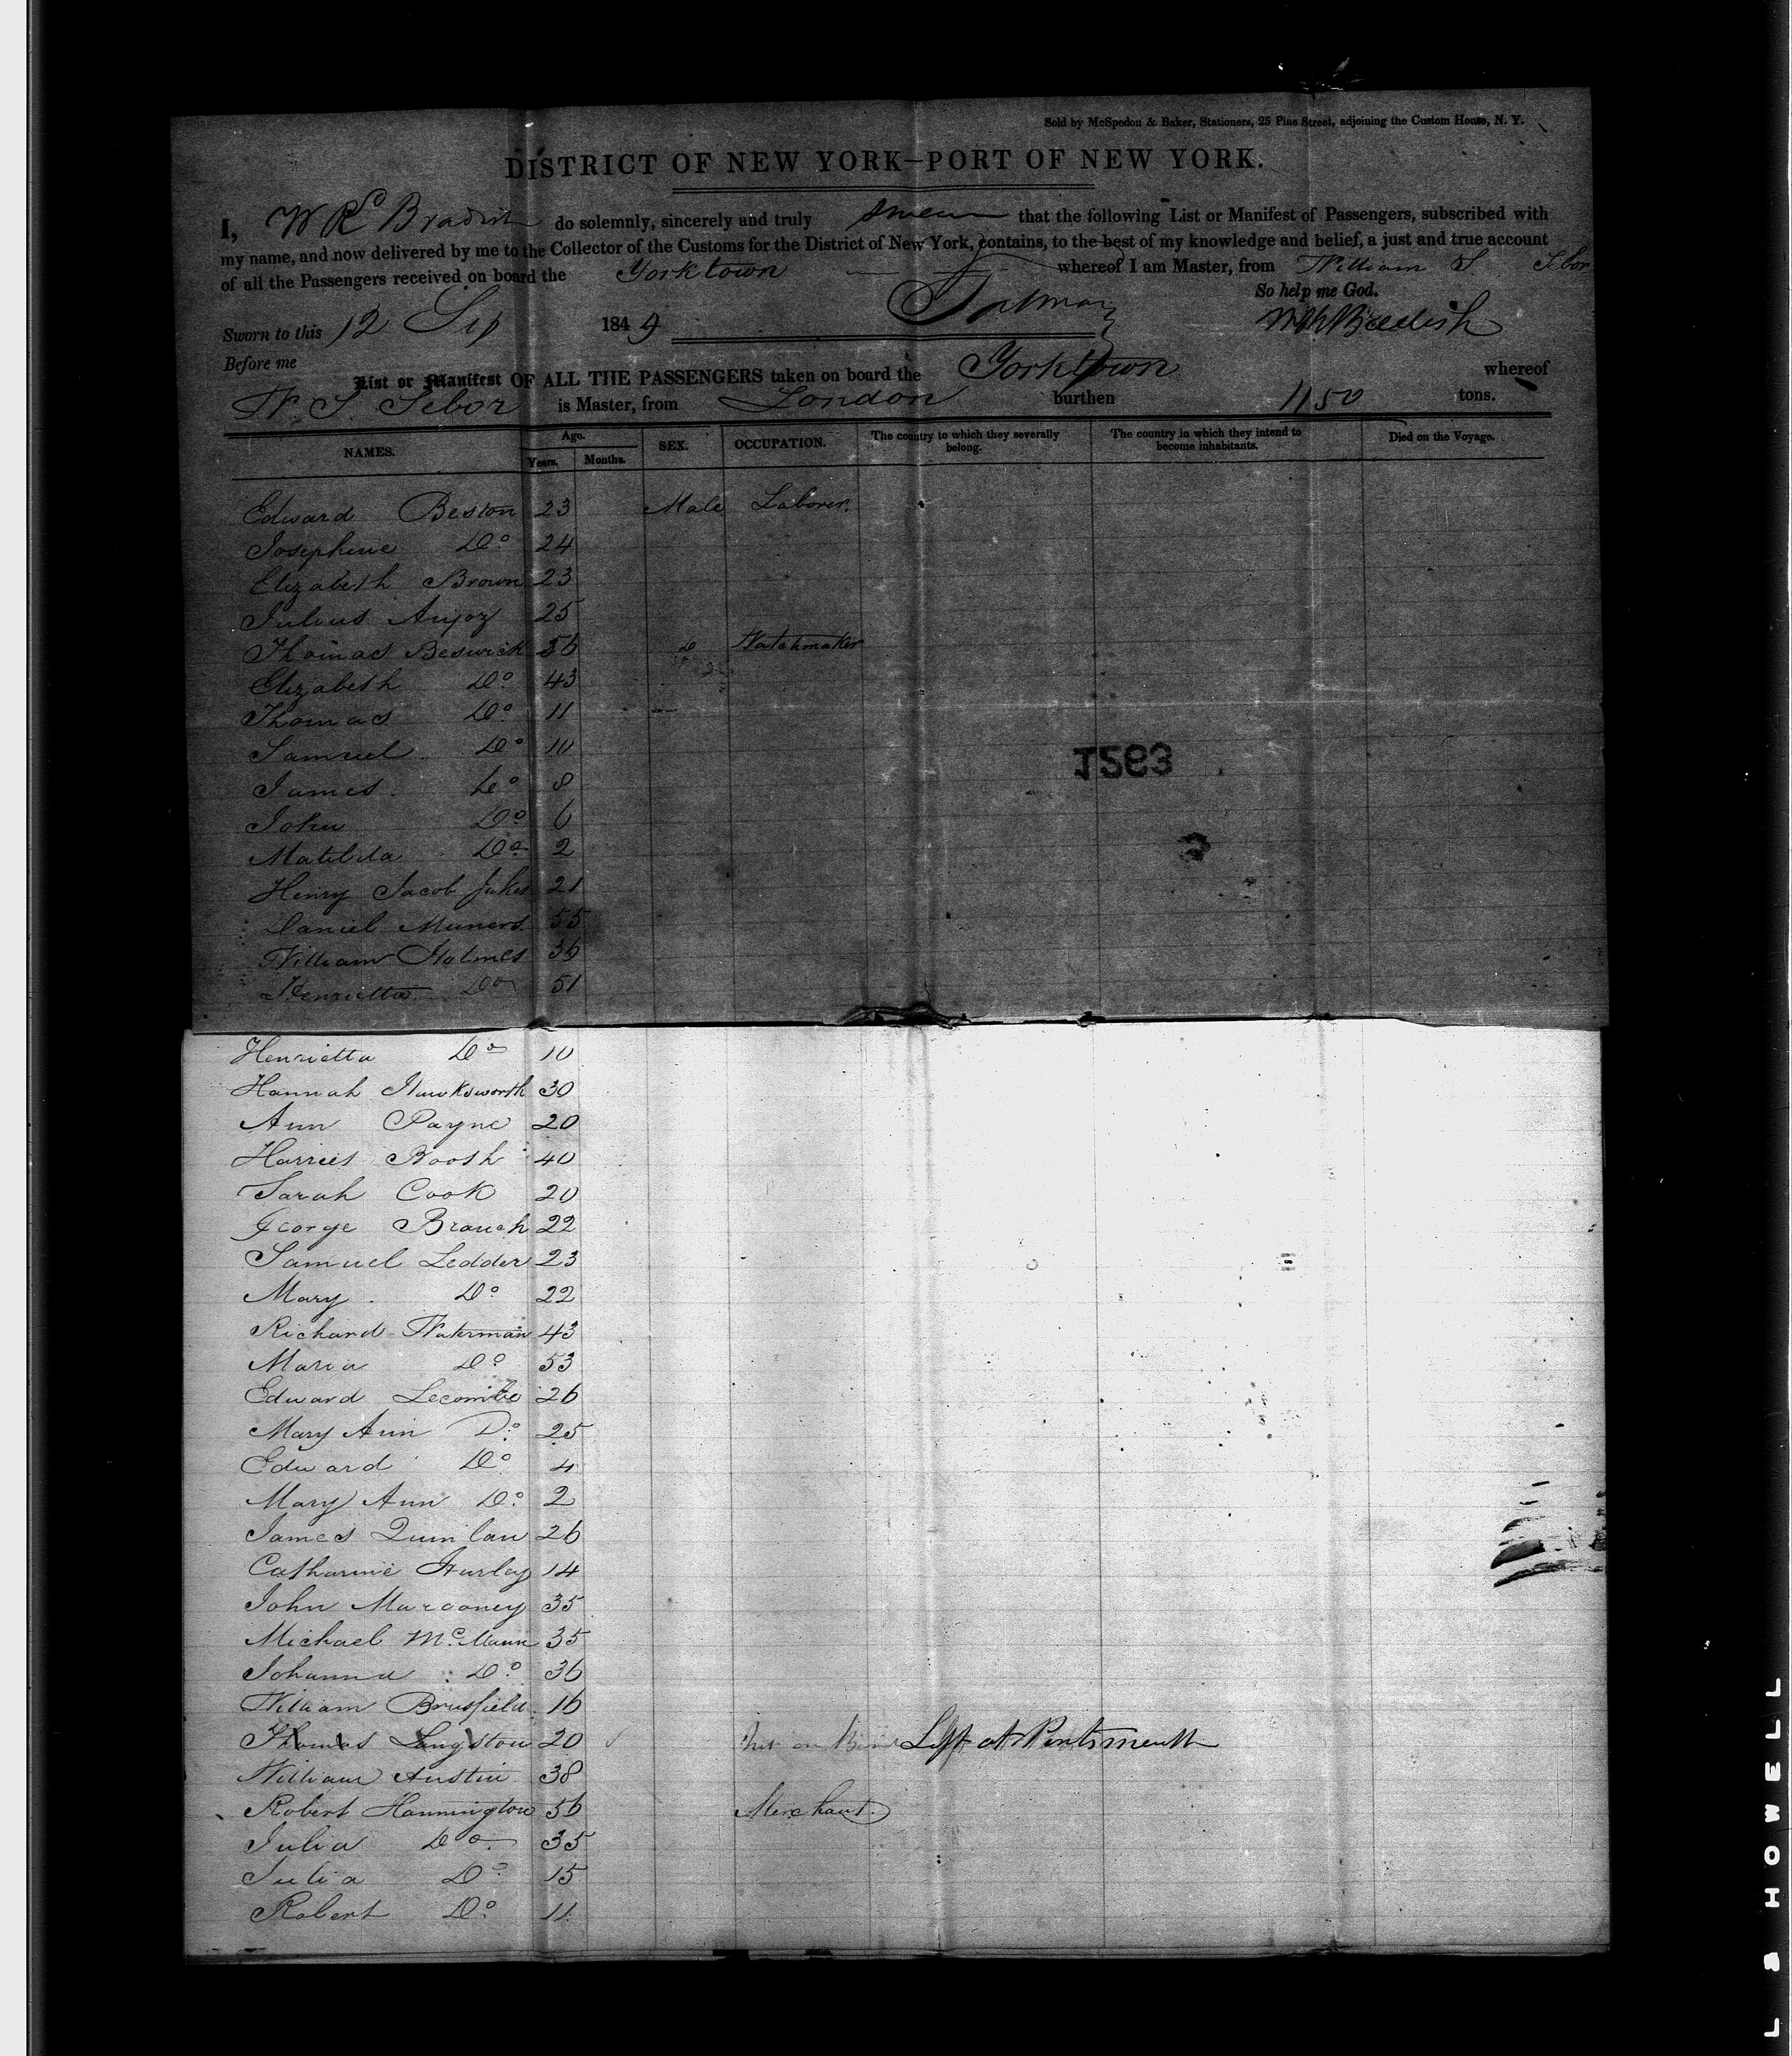 Sold by McSpedon & Baker, Stationers, 25 Pine Street, adjoining the Custom House, N. Y.
DISTRICT OF NEW YORK—PORT OF NEW YORK.
I, W R Bradish do solemnly, sincerely and truly swear that the following List or Manifest of Passengers, subscribed with
my name, and now delivered by me to the Collector of the Customs for the District of New York, contains, to the best of my knowledge and belief, a just and true account
of all the Passengers received on board the Yorktown whereof I am Master, from William S. Sebor
So help me God.
Sworn to this 12 Sep 1849 W R Bradish
Before me
List or Manifest OF ALL THE PASSENGERS taken on board the Yorktown whereof
W. S. Sebor is Master, from London burthen 1150 tons.
NAMES. Age. Years. Months. SEX. OCCUPATION. The country to which they severally belong. The country in which they intend to become inhabitants. Died on the Voyage.
Edward Beston 23 Male Laborer.
Josephine Do 24
Elizabeth Brown 23
Julius 25
Thomas Beswick 56 do Watchmaker
Elizabeth Do 43
Thomas Do 11
Samuel Do 10
James Do 8
John Do 6
Matilda Do 2
Henry Jacob Jukes 21
Daniel Muners 55
William Holmes 36
Henrietta Do 51
Henrietta Do 10
Hannah Hawksworth 30
Ann Payne 20
Harriet Boosh 40
Sarah Cook 20
George Branch 22
Samuel Ledder 23
Mary Do 22
Richard Waterman 43
Maria Do 53
Edward Lecombe 26
Mary Ann Do 25
Edward Do 4
Mary Ann Do 2
James Quinlan 26
Catharine Hurley 14
John Marooney 35
Michael McMann 35
Johanna Do 36
William Brusfield 16
Thomas Langston 20 Left at Portsmouth
William Austin 38
Robert Hannington 56 Merchant.
Julia Do 35
Julia Do 15
Robert Do 11
L S HOWELL